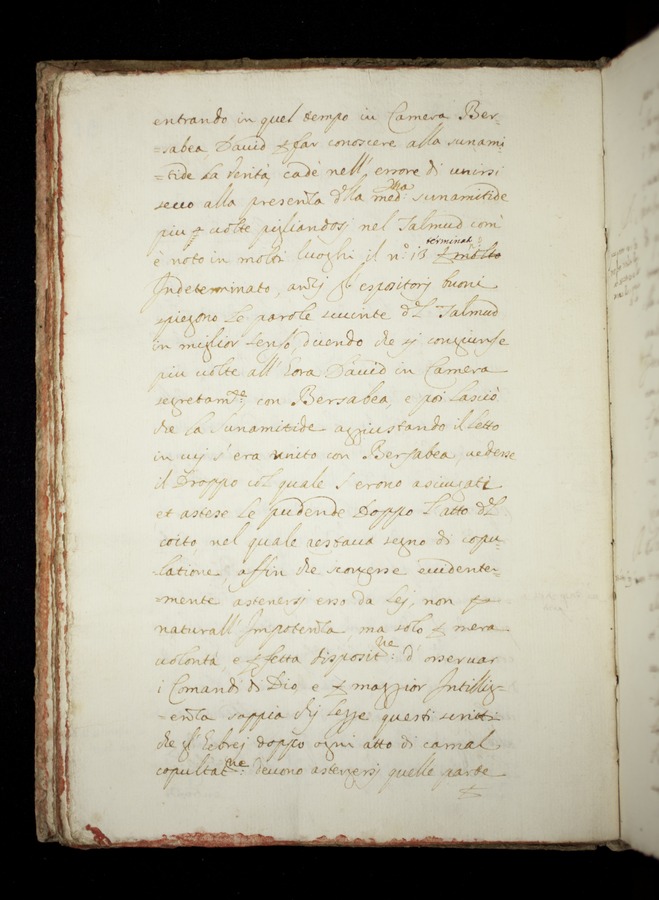 entrando in quel tempo in Camera Ber-
=sabea, David p far conoscere alla sunami
=tide la verità, cadè nell'errore di unirsi
seco alla presenza d.lla med.ma sunamitide
piu volte pigliandosj nel Talmud com'
è noto in moltj luoghi il n.o 13 terminat.
Indeterminato, anzj gl'espositorj buoni
spiegono le parole d.l Talmud
in miglior senso, dicendo che sj congiunse
piu volte all'hora David in Camera
segretam.te con Bersabea, e poi lasciò
che la Sunamitide aggiustando il letto
in cuj s'era unito con Bersabea, vedesse
il Droppo col quale s'erono asciugati
et astese le pudende doppo l'atto d.l
coito, nel quale restava segno di copu-
latione, affin che scorgesse evidente-
=mente astenersj esso da lej, non p
naturall'Impotenza ma solo p mera
volontà e pfetta disposit.ne: d'osservar
i Comandi di Dio, e p maggior Intillig-
=enza sappia chj legge questi scritti
che gl'Ecbrej doppo ogni atto di carnal
copultat.ne: devono astenersj quelle parte